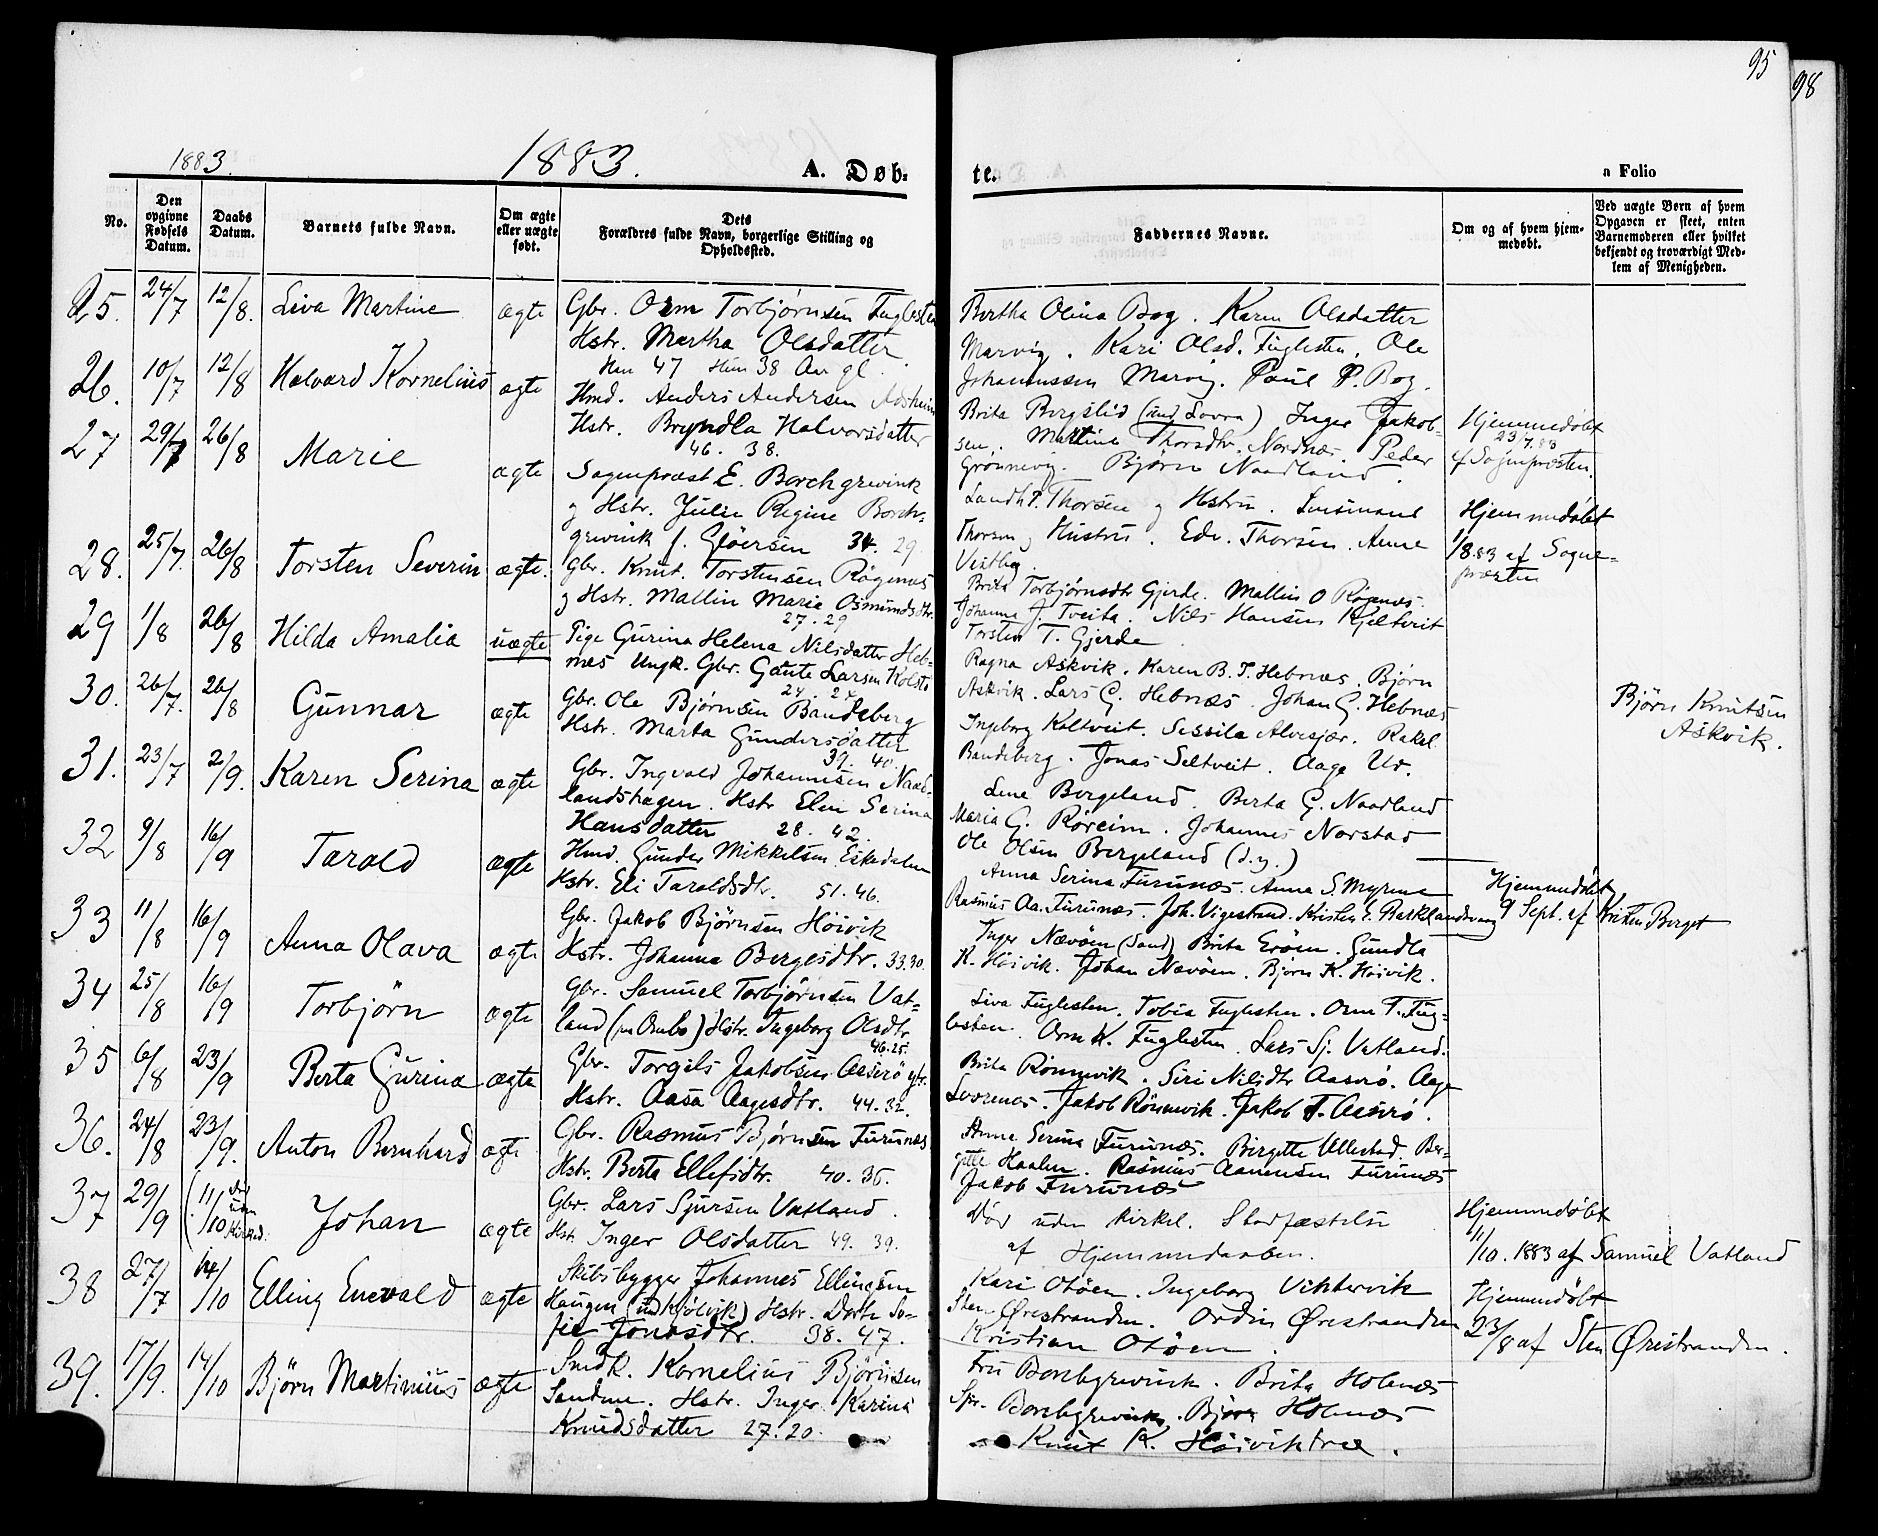 95
98
1883.
1883.
A. Døb-
te.
a Folio
No.
Den opgivne Fødsels Datum.
Daabs Datum.
Barnets fulde Navn.
Om ægte eller uægte født.
Dets Forældres fulde Navn, borgerlige Stilling og Opholdssted.
Faddernes Navne.
Om og af hvem hjemmedøbt.
Ved uægte Børn af hvem Opgaven er skeet, enten Barnemoderen eller hvilket bekjendt og troværdigt Medlem af Menigheden.
25. 24/7 12/8. Liva Martine ægte
Gbr. Orm Torbjørnsen Fuglesten
Hstr. Martha Olsdatter
Han 47 Hun 38 Aar gl.
Bertha Olina Bog. Karen Olsdatter
Marvig. Kari Olsd. Fuglesten. Ole
Johannessen Marvig. Poul P. Bog.
26. 10/7 12/8 Halvard Kornelius ægte
Hmd. Anders Andersen
Hstr. Bryndla Halvorsdatter
46. 38.
Brita Bergslid (und Lovra) Inger Jakob-
sen. Martine Thorsdtr. Nordnæs. Peder
Grønnevig. Bjørn Naadland.
Hjemmedøbt
23/7.83
af Sognepræsten.
27 29/7 26/8 Marie ægte
Sognepræst E. Borchgrevink
og Hstr. Julie Regine Borch-
grevink f. Gløersen 34. 29.
Landh. Thorsen og Hstru. Lensmand
Thorsen og Hustru. Edv. Thorsen. Anne
Vestbø.
Hjemmedøbt
1/8.83 af Sogne-
præsten
28. 25/7. 26/8 Torsten Severin ægte.
Gbr. Knut Torstensen Røgenes
og Hstr. Mallin Marie Osmundsdtr.
27. 29
Brita Torbjørnsdtr Gjerde. Mallin O Røgnæs.
Johanna J. Tveita. Nils Hansen Kjeltveit
Torsten T. Gjerde
29 1/8 26/8 Hilda Amalia uægte
Pige Gurina Helena Nilsdatter Heb-
nes Ungk. Gbr. Gaute Larsen Kolstø
24. 24
Ragna Askvik. Karen B. T. Hebnæs. Bjørn
Askvik. Lars G. Hebnæs. Johan G. Hebnæs
Bjørn Knutsen
Askvik.
30. 26/7. 26/8 Gunnar ægte
Gbr. Ole Bjørnsen Bandeberg
Hstr. Marta Gundersdatter
39. 40.
Ingeborg Koltveit. Sessila Alvesjær. Rakel
Bandeberg. Jonas Seltveit. Aage Ur.
31. 23/7 2/9. Karen Serina ægte
Gbr. Ingvald Johannesen Naad-
landshagen. Hstr Elen Serina
Hansdatter 28. 42.
Lene Bergeland. Berta G. Naadland
Maria G. Røreim. Johannes Norstad
Ole Olsen Bergeland (d.y.)
32 9/8 16/9 Tarald ægte
Hmd. Gunder Mikkelsen Eskedalen
Hstr. Eli Taraldsdtr. 51. 46.
Anna Serina Furunæs. Anna S Myrene
Rasmus Aa. Furunæs. Joh. Vigestrand. Kristen E. Barkland
Hjemmedøbt
9 Sept. af Kristen Berget
33 11/8 16/9 Anna Olava ægte
Gbr. Jakob Bjørnsen Høivik
Hstr. Johanna Bergesdtr. 33. 30.
Inger Nævøen (Sand) Brita Erøen. Gundla
K. Høivik. Johan Nævøen. Bjørn K. Høivik.
34 25/8 16/9 Torbjørn ægte
Gbr. Samuel Torbjørnsen Vat-
land (paa Ombo) Hstr. Ingeborg Olsdtr
46. 25.
Liva Fuglesten. Tobia Fuglesten. Orm T. Fug-
lesten. Orm K. Fuglesten. Lars Sj. Vatland.
35 6/8 23/9 Berta Gurina ægte
Gbr. Torgils Jakobsen Aaserø ytr.
Hstr. Aasa Aagesdtr. 44. 32.
Brita Rønnevik. Siri Nilsdtr Aaserø. Aage
Lovrenæs. Jakob Rønnevik. Jakob T. Aaserø.
36. 24/8 23/9. Anton Bernhard ægte
Gbr. Rasmus Bjørnsen Furunæs
Hstr. Berta Ellefsdtr. 40. 35.
Anne Serina Furunæs. Birgitte Ullestad. Ber-
gitte Haalen. Rasmus Aanensen Furunæs
Jakob Furunæs
37 29/9 (11/10 død uden Kirked. Johan ægte
Gbr. Lars Sjursen Vatland.
Hst. Inger Olsdatter 49. 39.
Død uden kirkel. Stadfæstelse
af Hjemmedaaben.
Hjemmedøbt
11/10. 1883 af Samuel Vatland
38 27/7 14/10 Elling Enevald ægte
Skibsbygger Johannes Ellingsen
Haugen (und Kjølvik) Hstr. Dorte So-
fie Jonasdtr. 38. 47.
Kari Otøen. Ingeborg Viktervik
Sten Ørestranden. Ordin Ørestranden
Kristian Otøen.
Hjemmedøbt
23/8 af Sten Ørestranden.
39. 17/9. 14/10 Bjørn Martinius ægte
Smdk. Kornelius Bjørnsen
Sandene. Hstr. Inger Karina
Knudsdatter 27. 20.
Fru Borchgrevink. Brita Hobnæs
Spr. Borchgrevink. Bjørn Hobnæs
Knut K. Høiviktræ.